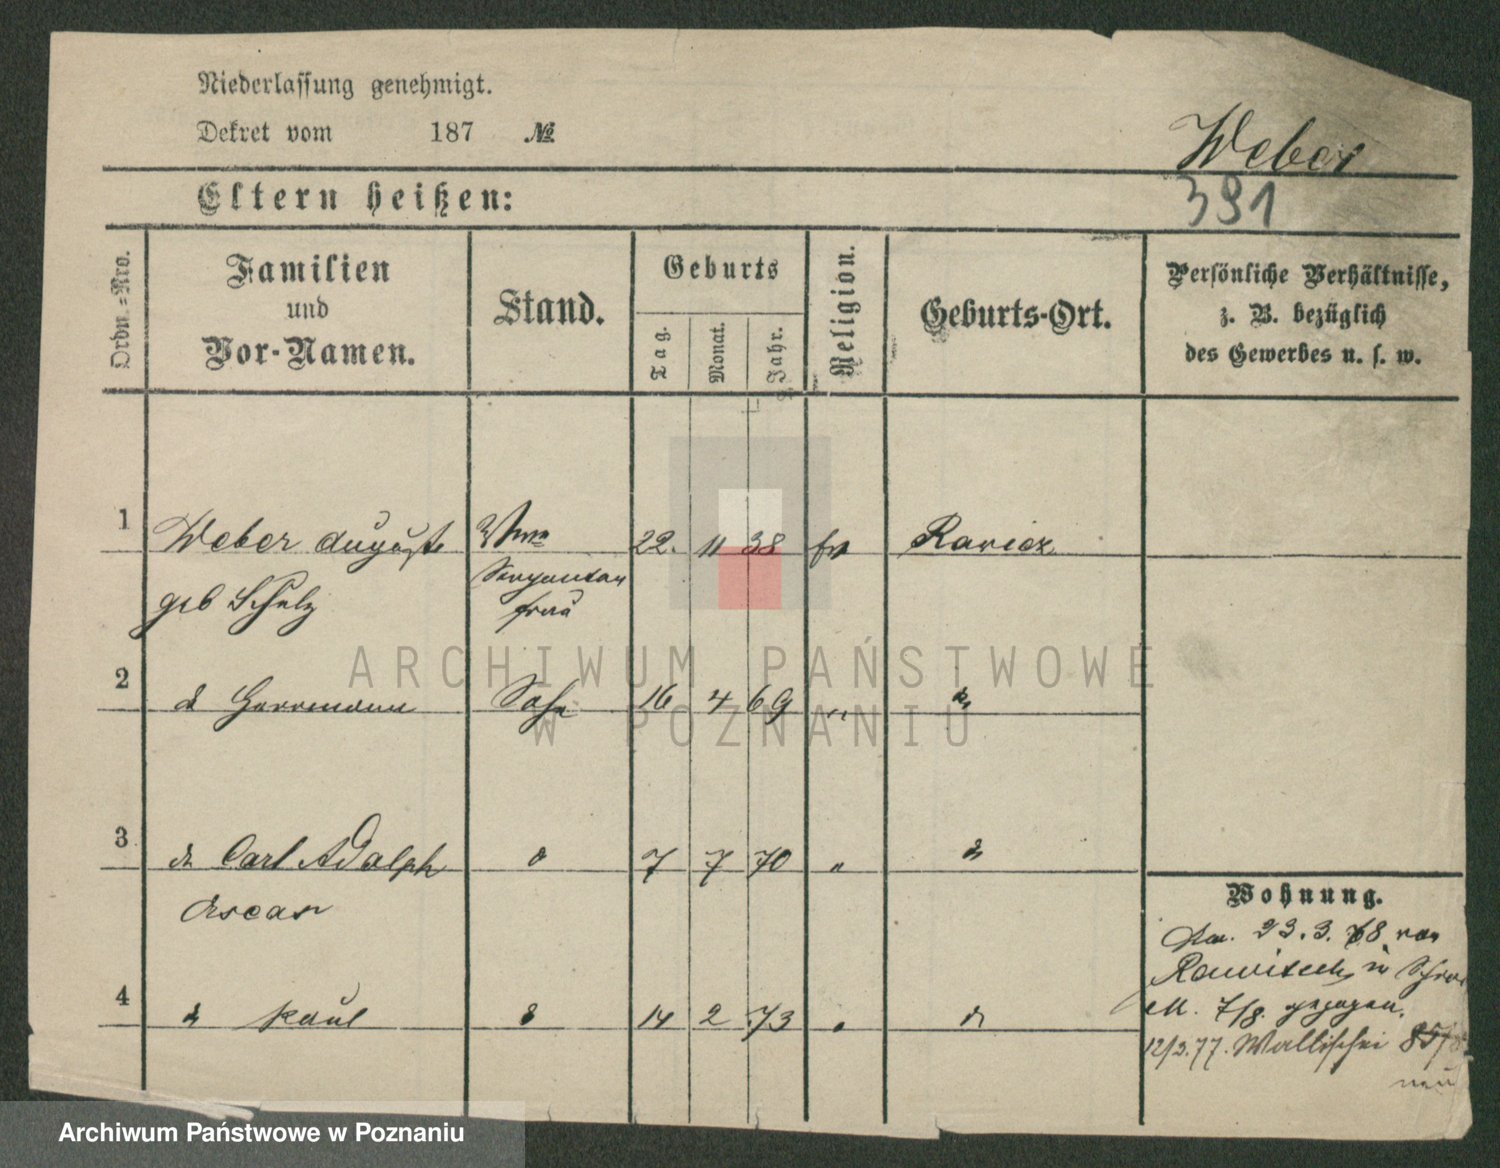 Niederlassung genehmigt.
Dekret vom 187 №
Weber
391
Eltern heißen:
Ordn.-Nro.
Familien
und
Vor-Namen.
Stand.
Geburts
Tag.
Monat.
Jahr.
Religion.
Geburts-Ort.
Persönliche Verhältnisse,
z. B. bezüglich
des Gewerbes u. s. w.
1 Weber Auguste 22. 11 38 ev Rawicz
geb Schulz frau
2 d Herrmann Sohn 16 4 69 " d
3 d Carl Adolph d 7 7 70 " d
Oscar
4 d Paul d 14 2 73 " d
Wohnung.
23.3. von
Rawitsch in
M. 7/8. gezogen.
12/3.77. Wallischei
neu
ARCHIWUM PAŃSTWOWE
W POZNANIU
Archiwum Państwowe w Poznaniu